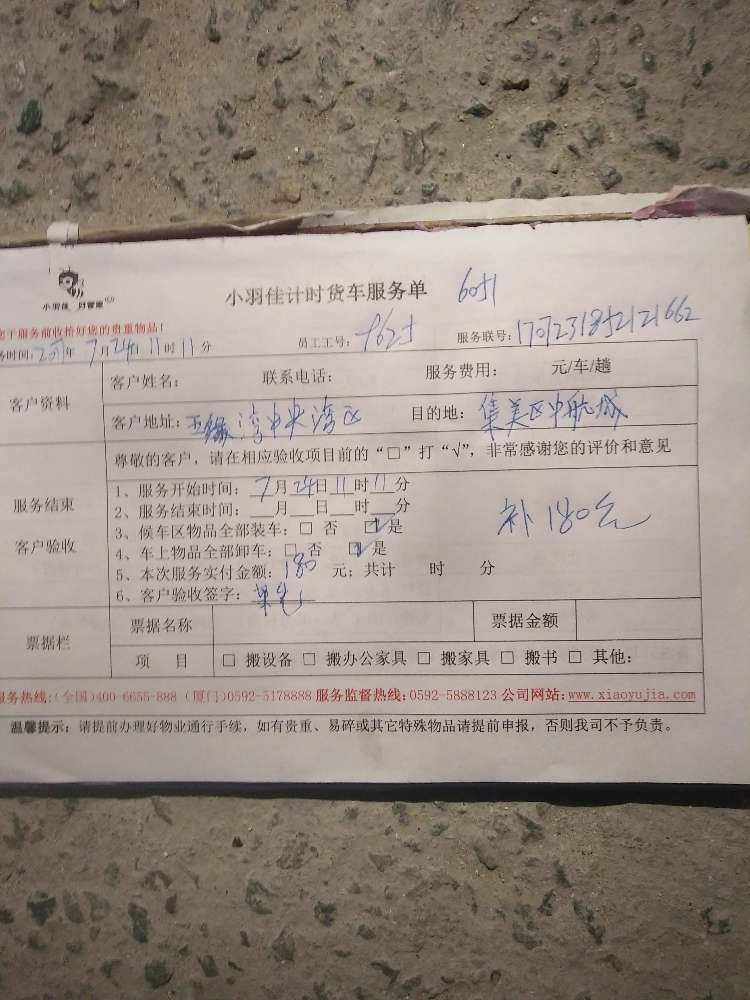 小羽佳 好管家
小羽佳计时货车服务单
于服务前收拾好您的贵重物品!
务时间: 年 7月24日11时11分 员工工号: 服务联号:
客户资料
客户姓名: 联系电话: 服务费用: 元/车/趟
客户地址: 湾中央湾区 目的地: 集美区中航城
尊敬的客户，请在相应验收项目前的“□”打“√”，非常感谢您的评价和意见
服务结束
客户验收
1、服务开始时间: 7月24日11时11分
2、服务结束时间: 月 日 时 分
3、候车区物品全部装车: □ 否 ☑ 是
补180元
4、车上物品全部卸车: □ 否 ☑ 是
5、本次服务实付金额: 180 元; 共计 时 分
6、客户验收签字:
票据栏
票据名称 票据金额
项 目 □ 搬设备 □ 搬办公家具 □ 搬家具 □ 搬书 □ 其他:
服务热线:(全国)400-6655-888 (厦门)0592-5178888 服务监督热线:0592-5888123 公司网站:www.xiaoyujia.com
温馨提示: 请提前办理好物业通行手续，如有贵重、易碎或其它特殊物品请提前申报，否则我司不予负责。